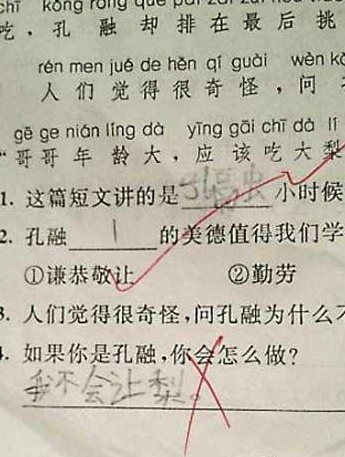 chī kǒng róng què pái zài zuì hòu
吃，孔 融 却 排 在 最 后 挑
rén men jué de hěn qí guài wèn kǒ
人 们 觉 得 很 奇 怪，问
gē ge nián líng dà yīng gāi chī dà lí
“哥 哥 年 龄 大，应 该 吃 大 梨
1. 这篇短文讲的是 孔融 小时候
2. 孔融 1 的美德值得我们学
①谦恭敬让 ②勤劳
3. 人们觉得很奇怪，问孔融为什么不
4. 如果你是孔融，你会怎么做？
我不会让梨。